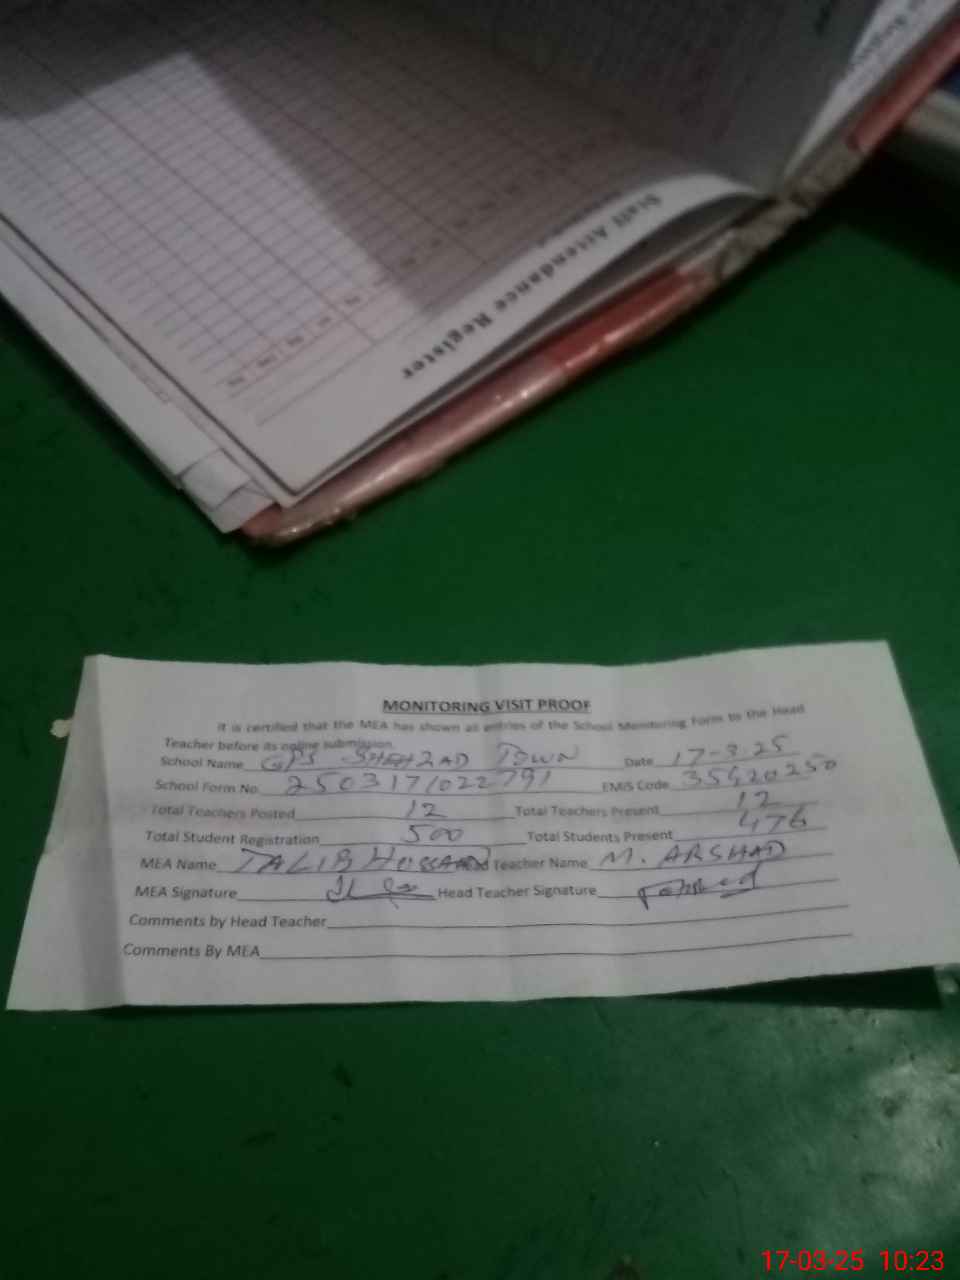 Staff Attendance Register
MONITORING VISIT PROOF
It is certified that the MEA has shown as entries of the School Monitoring Form to the Head
Teacher before its online submission.
School Name GPS SHEHZAD TOWN Date 17-3-25
School Form No. 2503171022791 EMIS Code 35420250
Total Teachers Posted 12 Total Teachers Present 12
Total Student Registration 500 Total Students Present 476
MEA Name TALIB HUSSAIN Head Teacher Name M. ARSHAD
MEA Signature Head Teacher Signature
Comments by Head Teacher
Comments By MEA
17-03-25 10:23